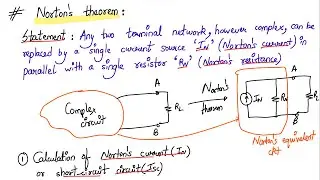 # Norton's theorem :
Statement : Any two terminal network, however complex, can be
replaced by a single current source 'IN' (Norton's current) in
parallel with a single resistor 'RN' (Norton's resistance)
A
A
Complex
circuit
RL
Norton's
theorem
IN
RN
RL
B
B
Norton's equivalent
ckt
① Calculation of Norton's current (IN)
or short circuit circuit (Isc)